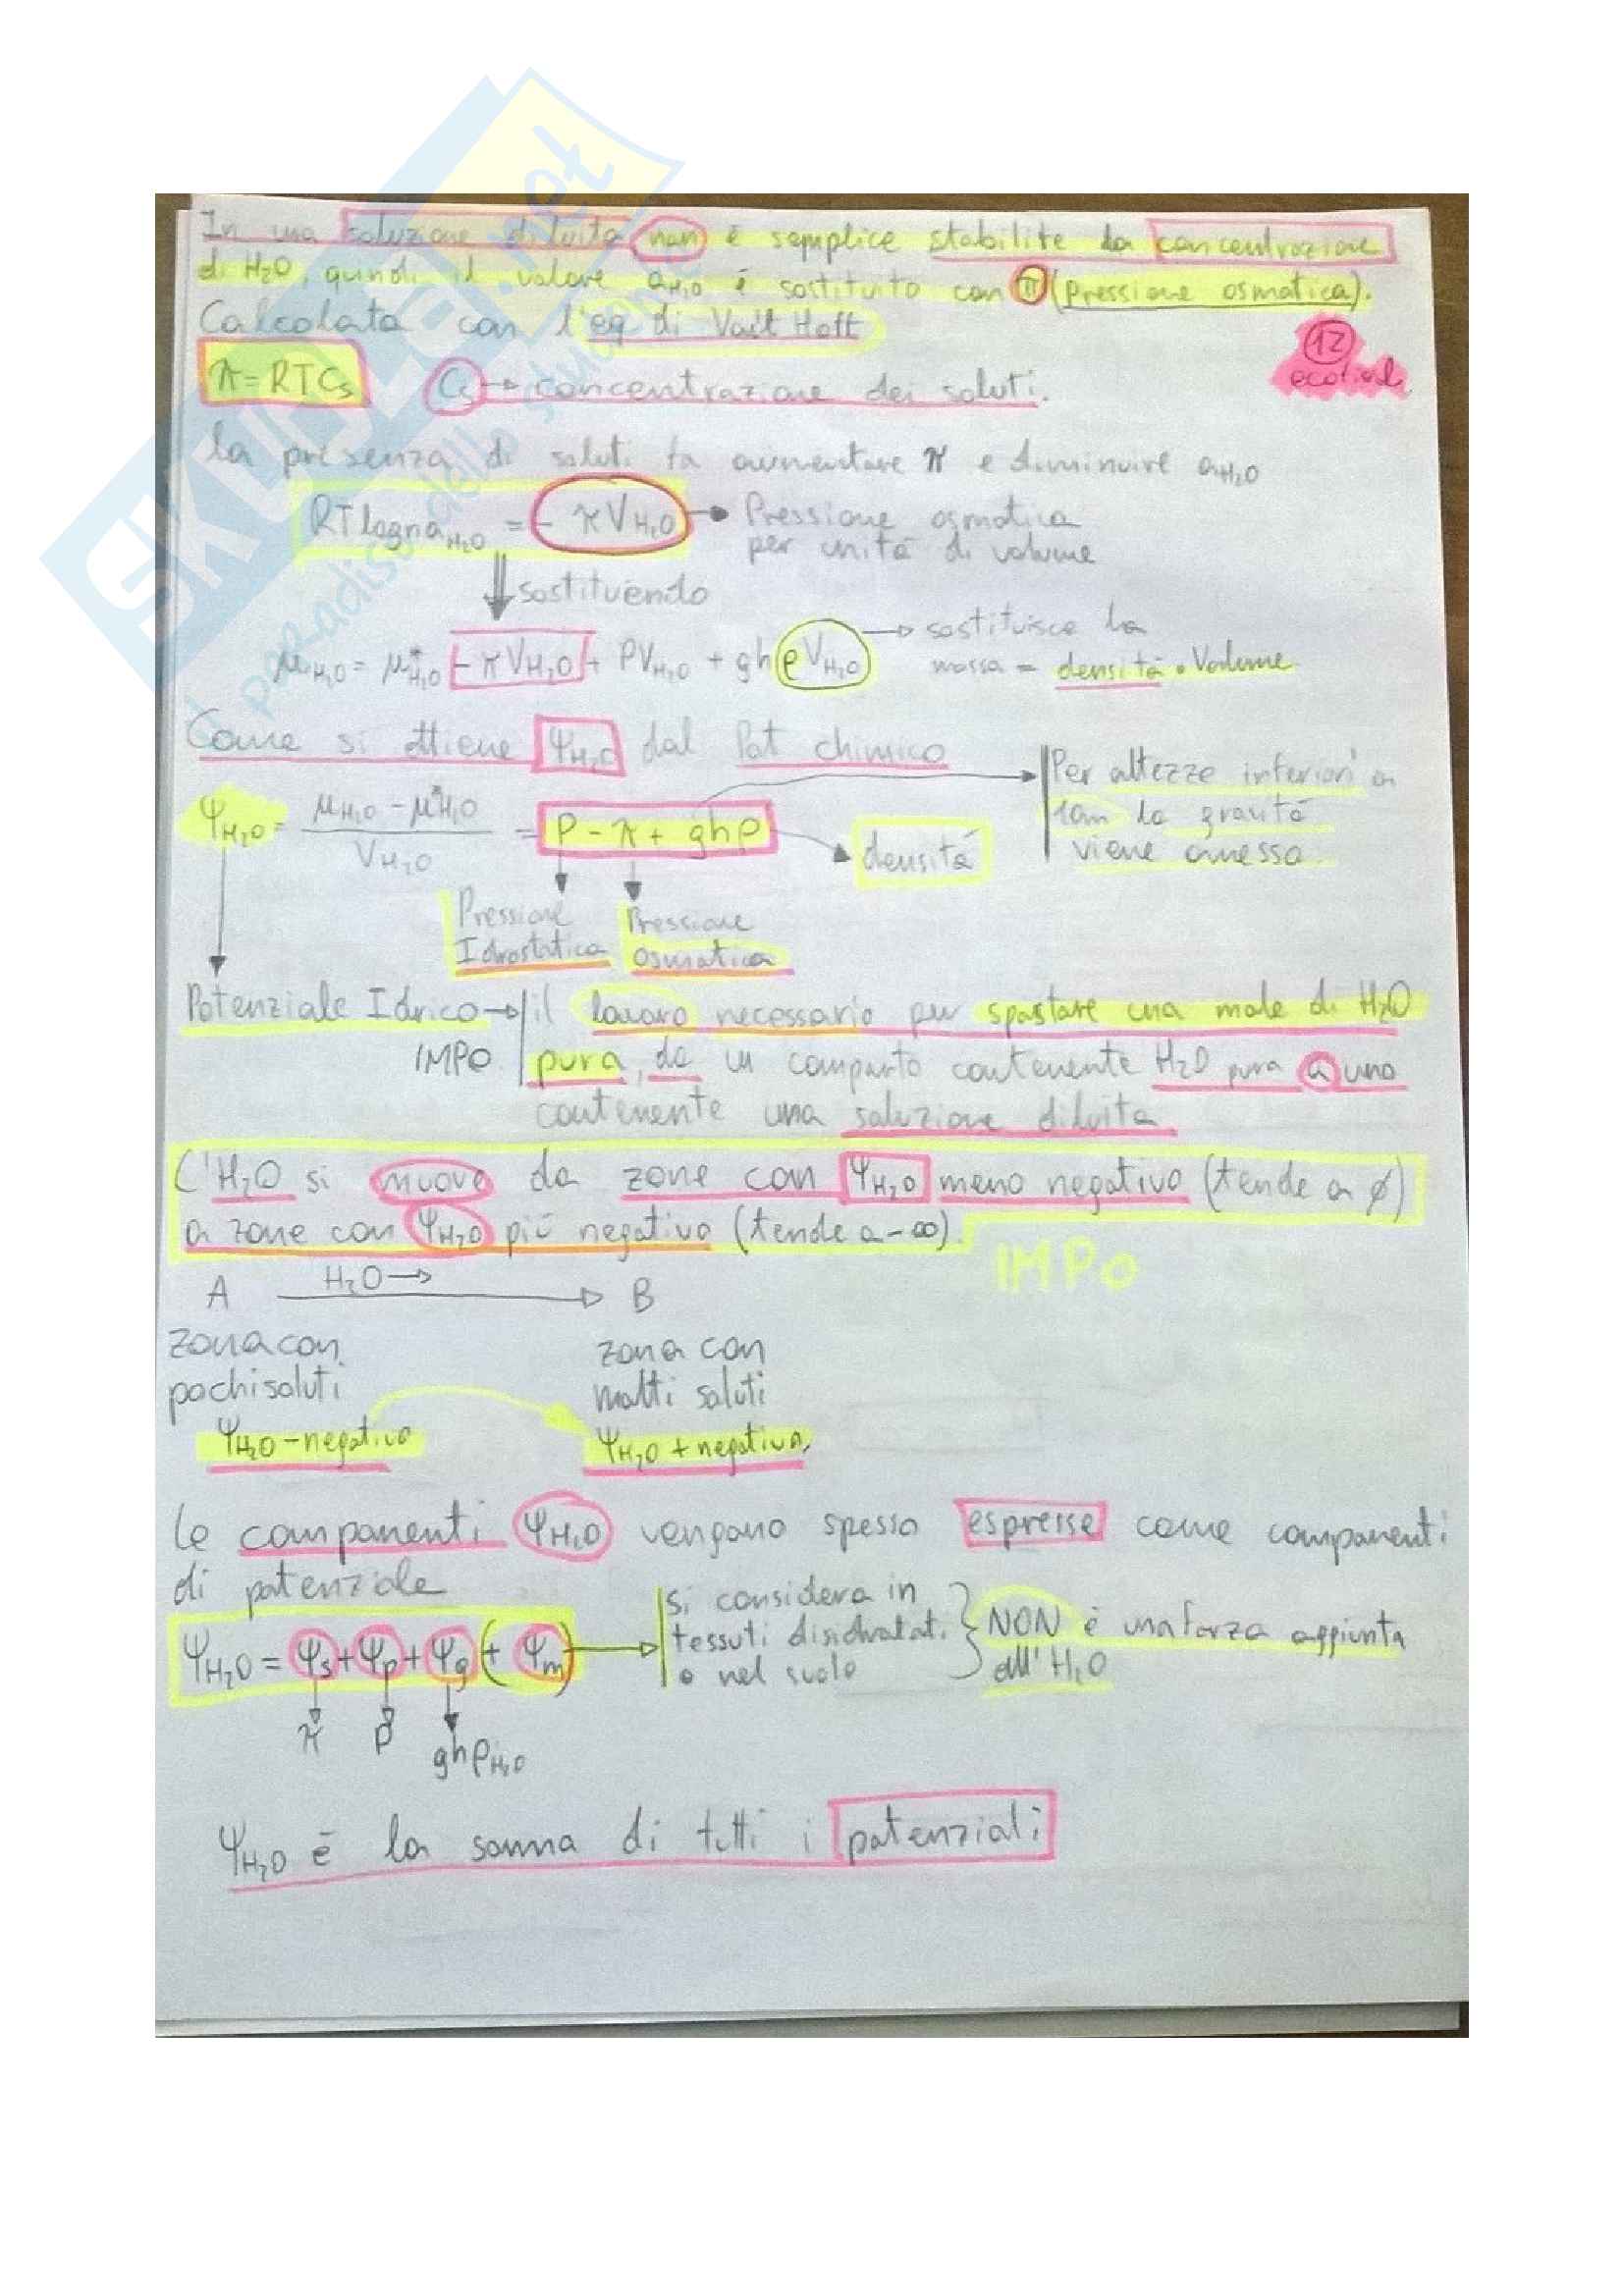 In una soluzione diluita non è semplice stabilite la concentrazione
di H₂O, quindi il valore aH₂O è sostituito con π (Pressione osmatica).
Calcolata con l'eq di Va't Hoff
12
π = RTCs Cs → concentrazione dei soluti.
la presenza di soluti fa aumentare π e diminuire aH₂O
RT logna H₂O = - πVH₂O → Pressione osmotica
per unità di volume
sostituendo
μH₂O = μ*H₂O - πVH₂O + PVH₂O + ghρVH₂O → sostituisce la
massa = densità • Volume
Come si ottiene ΨH₂O dal Pot chimico
Per altezze inferiori a
10m la gravità
viene omessa.
ΨH₂O = μH₂O - μ*H₂O / VH₂O = P - π + ghρ
densità
Pressione Idrostatica
Pressione Osmotica
Potenziale Idrico → il lavoro necessario per spostare una mole di H₂O
IMPO pura, da un comparto contenente H₂O pura a uno
contenente una soluzione diluita
L'H₂O si muove da zone con ΨH₂O meno negativo (tende a ϕ)
a zone con ΨH₂O più negativo (tende a -∞).
IMPO
A H₂O → B
zona con zona con
pochi soluti molti soluti
ΨH₂O - negativo ΨH₂O + negativo
le componenti ΨH₂O vengono spesso espresse come componenti
di potenziale
ΨH₂O = Ψs + Ψp + Ψg (+ Ψm)
si considera in
tessuti disidratati
o nel suolo
NON è una forza aggiunta
all'H₂O
π P ghρH₂O
ΨH₂O è la somma di tutti i potenziali
SKUOLA.net
il paradiso dello studente